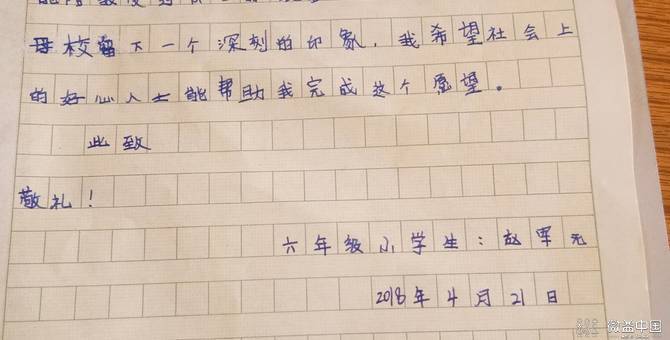 母校留下一个深刻的印象，我希望社会上
的好心人士能帮助我完成这个愿望。
此致
敬礼！
六年级小学生：赵军元
2018年4月21日
微益中国